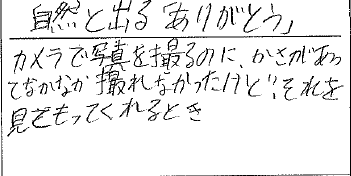 自然と出る「ありがとう」
カメラで写真を撮るのに、かさがあっ
てなかなか撮れなかったけど、それを
見てもってくれるとき